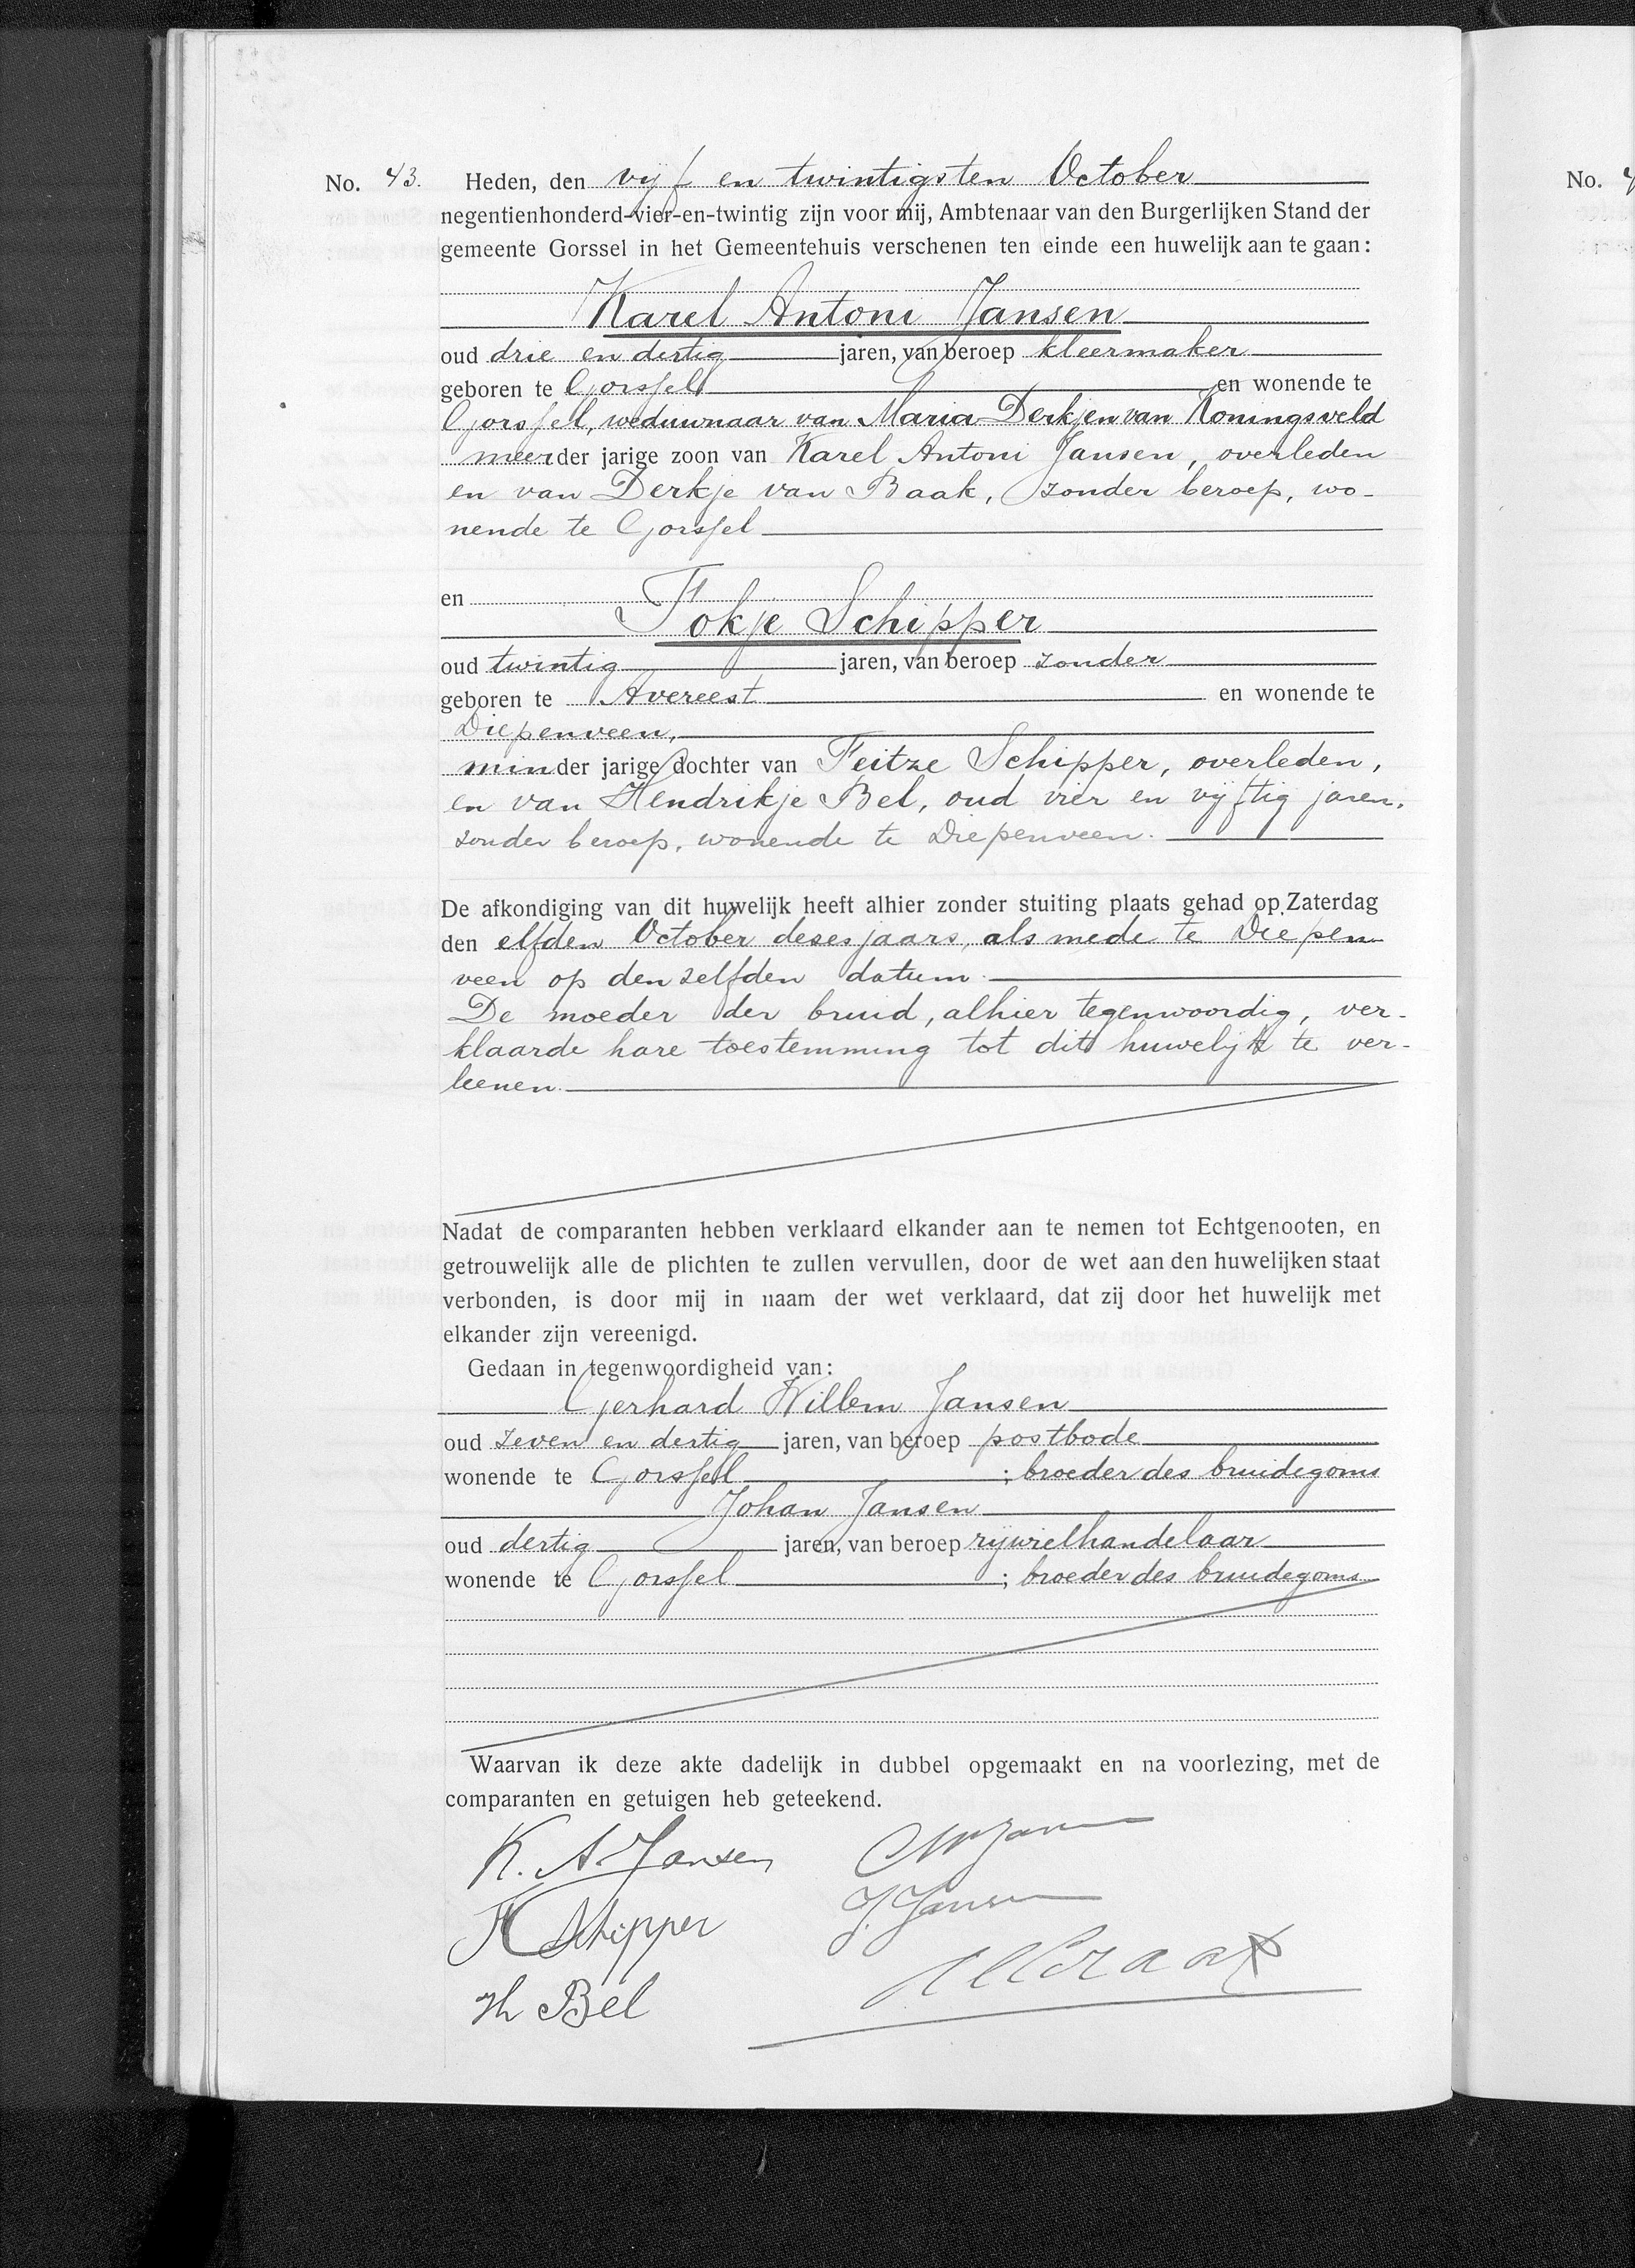 No. 43. Heden, den vijf en twintigsten October
negentienhonderd-vier-en-twintig zijn voor mij, Ambtenaar van den Burgerlijken Stand der
gemeente Gorssel in het Gemeentehuis verschenen ten einde een huwelijk aan te gaan:
Karel Antoni Jansen
oud drie en dertig jaren, van beroep kleermaker
geboren te Gorssel en wonende te
Gorssel, weduwnaar van Maria Derkjen van Koningsveld
meerder jarige zoon van Karel Antoni Jansen, overleden
en van Derkje van Baak, zonder beroep, wo-
nende te Gorssel
en
Fokje Schipper
oud twintig jaren, van beroep zonder
geboren te Avereest en wonende te
Diepenveen,
minder jarige dochter van Feitze Schipper, overleden,
en van Hendrikje Bel, oud vier en vijftig jaren,
zonder beroep, wonende te Diepenveen.
De afkondiging van dit huwelijk heeft alhier zonder stuiting plaats gehad op Zaterdag
den elfden October dezes jaars, als mede te Diepen-
veen op den zelfden datum.
De moeder der bruid, alhier tegenwoordig, ver-
klaarde hare toestemming tot dit huwelijk te ver-
leenen.
Nadat de comparanten hebben verklaard elkander aan te nemen tot Echtgenooten, en
getrouwelijk alle de plichten te zullen vervullen, door de wet aan den huwelijken staat
verbonden, is door mij in naam der wet verklaard, dat zij door het huwelijk met
elkander zijn vereenigd.
Gedaan in tegenwoordigheid van:
Gerhard Willem Jansen
oud zeven en dertig jaren, van beroep postbode
wonende te Gorssel ; broeder des bruidegoms
Johan Jansen
oud dertig jaren, van beroep rijwielhandelaar
wonende te Gorssel ; broeder des bruidegoms
Waarvan ik deze akte dadelijk in dubbel opgemaakt en na voorlezing, met de
comparanten en getuigen heb geteekend.
K. A. Jansen
GW Jansen
F Schipper
J. Jansen
H Bel
No.